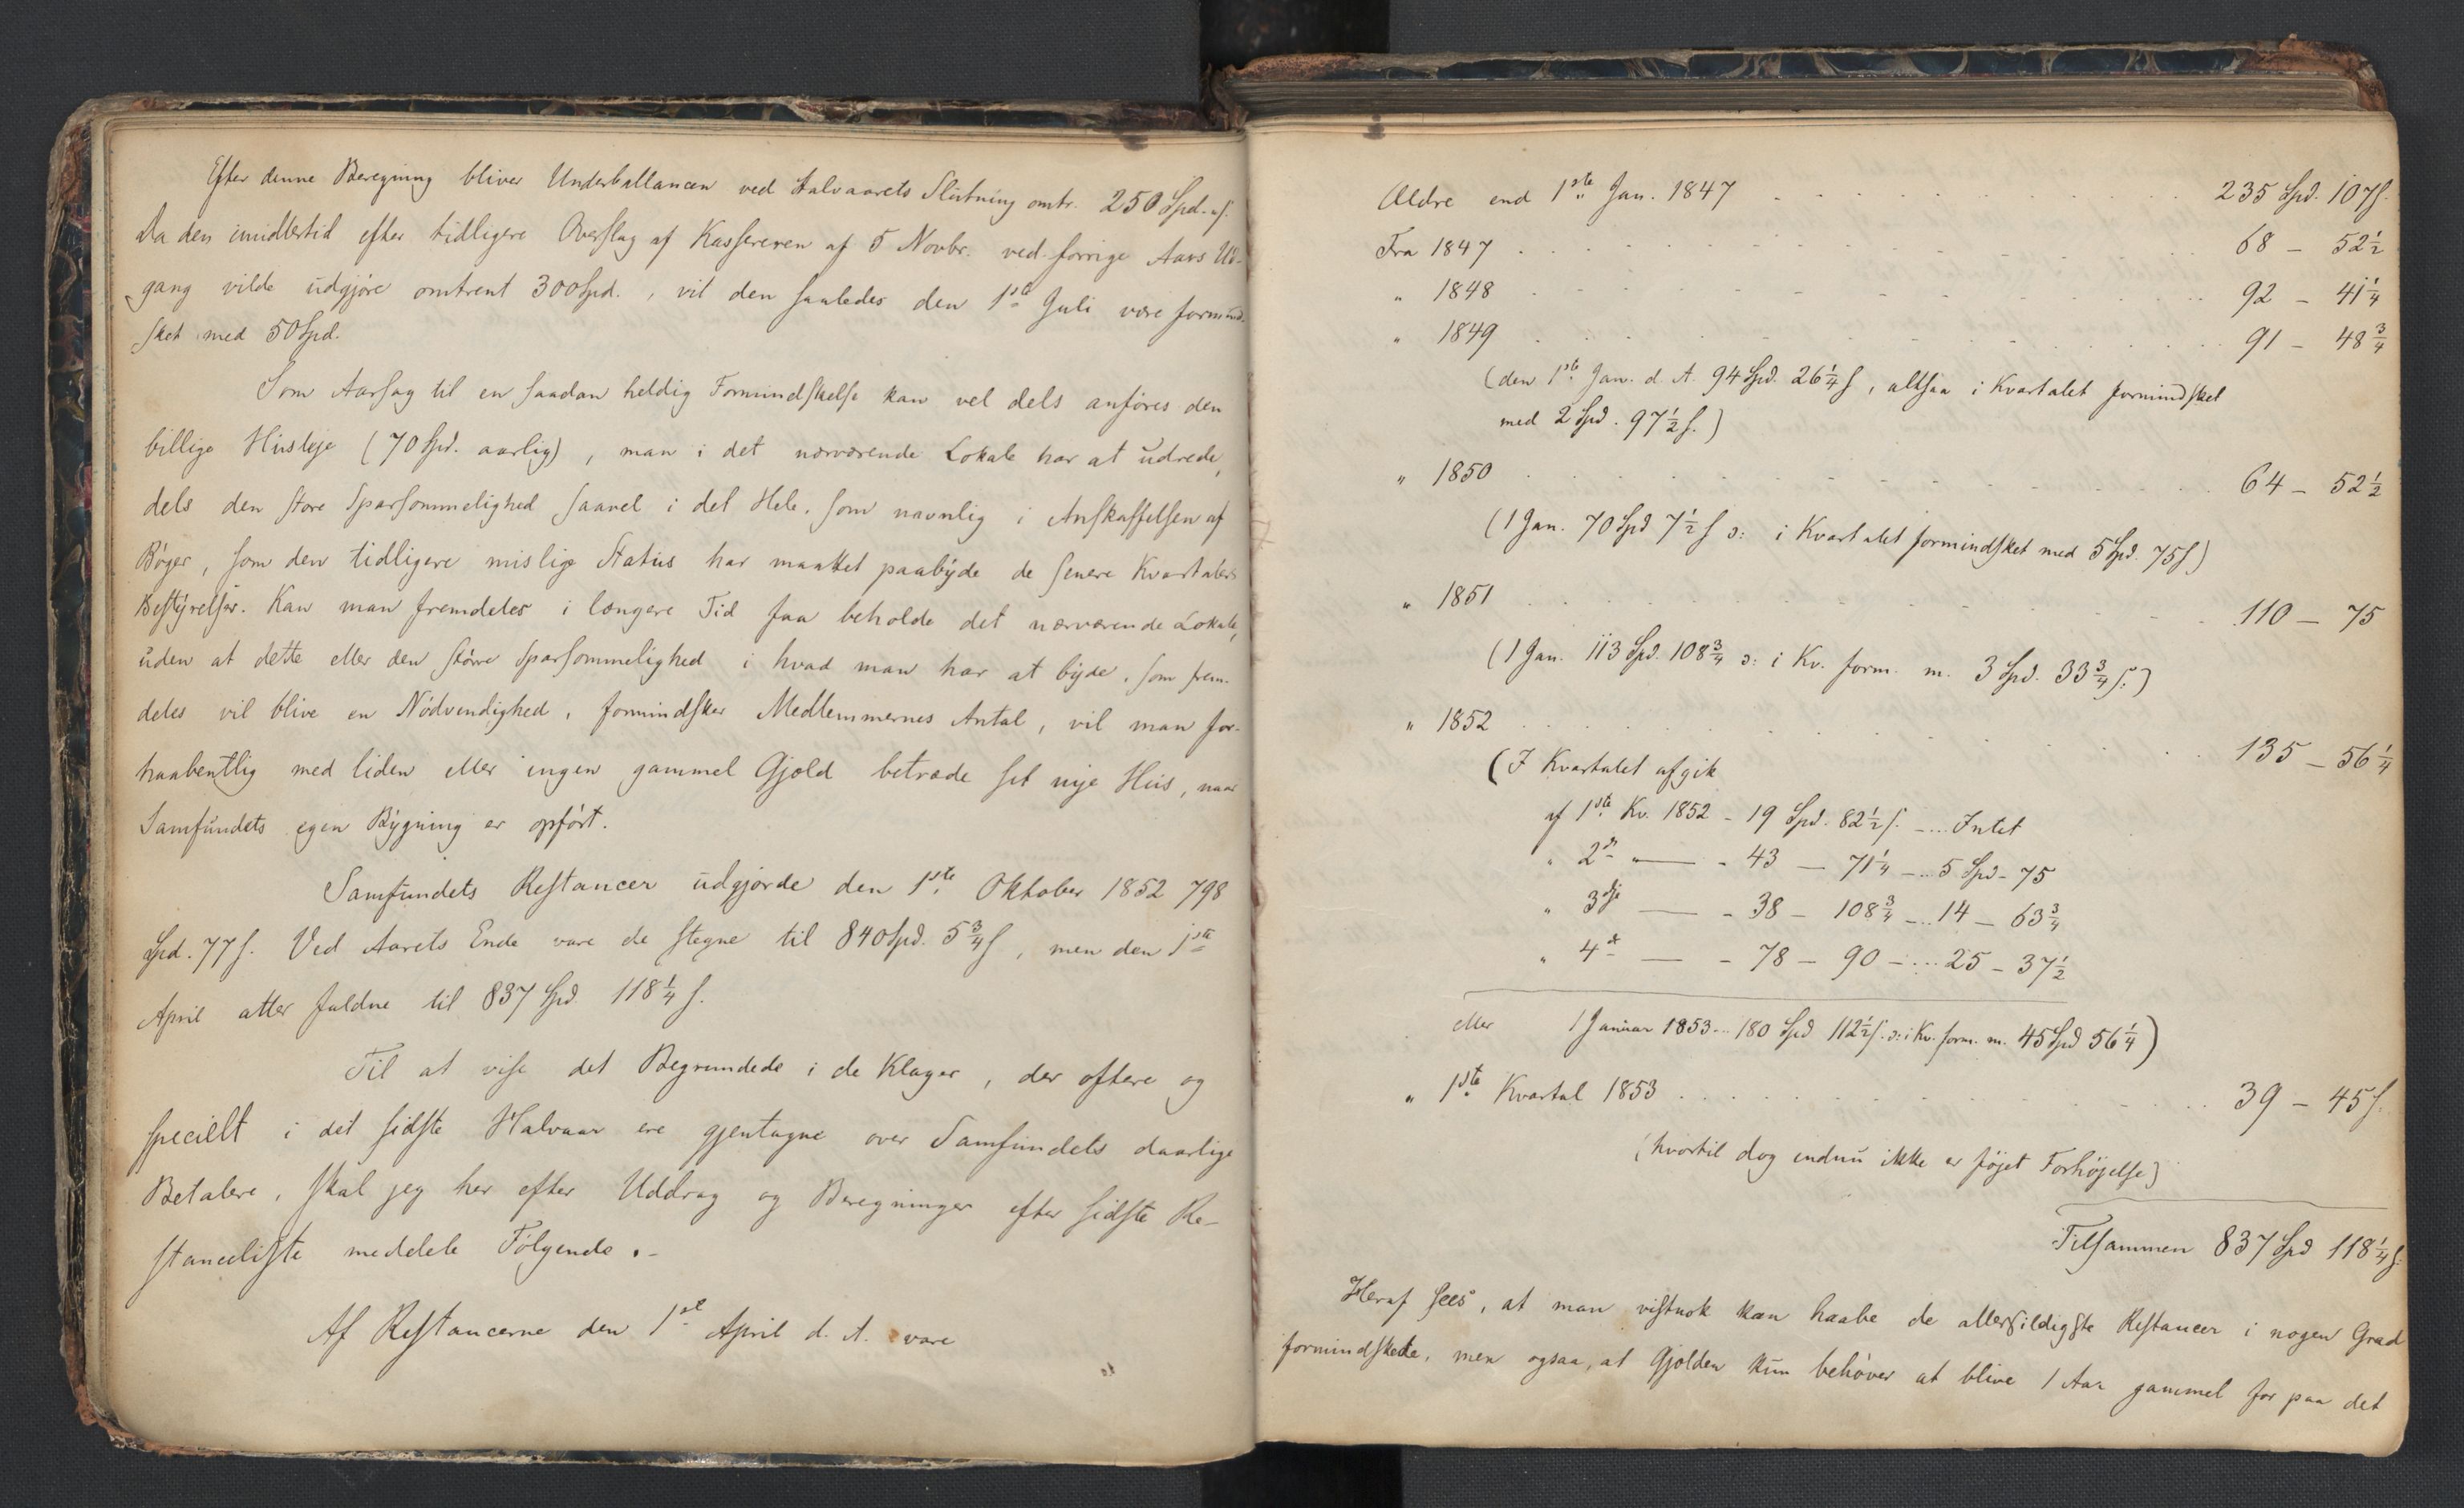 Efter denne Beregning bliver Underballancen ved Halvaarets Slutning omtr. 250 Spd.
Da den imidlertid efter tidligere Overslag af Kassereren af 5 Novbr. ved forrige Aars Ud-
gang vilde udgjøre omtrent 300 Spd., vil den saaledes den 1ste Juli være formind-
sket med 50 Spd.
Som Aarsag til en saadan heldig Formindskelse kan vel dels anføres den
billige Husleje (70 Spd. aarlig), man i det nærværende Lokale har at udrede,
dels den store Sparsommelighed saavel i det Hele, som navnlig i Anskaffelsen af
Bøger, som den tidligere mislige Status har maattet paabyde de senere Kvartalers
Bestyrelser. Kan man fremdeles i længere Tid faa beholde det nærværende Lokale,
uden at dette eller den større Sparsommelighed i hvad man har at byde, som frem-
deles vil blive en Nödvendighed, formindsker Medlemmernes Antal, vil man for-
haabentlig med liden eller ingen gammel Gjæld betræde sit nye Hus, naar
Samfundets egen Bygning er opført.
Samfundets Restancer udgjorde den 1ste Oktober 1852 798
Spd. 77 s. Ved Aarets Ende vare de stegne til 840 Spd. 5 3/4 s, men den 1ste
April atter faldne til 837 Spd. 118 1/4 s.
Til at vise det Begrundede i de Klager, der oftere og
specielt i det sidste Halvaar ere gjentagne over Samfundets daarlige
Betalere, skal jeg her efter Uddrag og Beregninger efter sidste Re-
stanceliste meddele Følgende.-
Af Restancerne den 1ste April d. A. vare
Ældre end 1ste Jan. 1847 . . . 235 Spd. 107 s.
Fra 1847 . . . 68 - 52 1/2
" 1848 . . . 92 - 41 1/4
" 1849 . . . 91 - 48 3/4
(den 1ste Jan. d. A. 94 Spd. 26 1/4 s, altsaa i Kvartalet formindsket
med 2 Spd. 97 1/2 s.)
" 1850 . . . 64 - 52 1/2
(1 Jan. 70 Spd 7 1/2 s ɔ: i Kvartalet formindsket med 5 Spd. 75 s)
" 1851 . . . 110 - 75
(1 Jan. 113 Spd. 108 3/4 ɔ: i Kv. form. m. 3 Spd. 33 3/4 s.)
" 1852 . . . 135 - 56 1/4
(I Kvartalet afgik
af 1ste Kv. 1852 - 19 Spd. 82 1/2 s. - ... Intet
" 2det " — - 43 — 71 1/4 - .. 5 Spd - 75
" 3die — - 38 - 108 3/4 - .. 14 - 63 3/4
" 4de — - 78 - 90 - ... 25 - 37 1/2
eller 1 Januar 1853 ... 180 Spd 112 1/2 s. ɔ: i Kv. form. m. 45 Spd 56 1/4)
" 1ste Kvartal 1853 . . . 39 - 45 s.
(hvortil dog endnu ikke er föjet Forhöjelse)
Tilsammen 837 Spd 118 1/4 s.
Heraf sees, at man vistnok kan haabe de allersildigste Restancer i nogen Grad
formindskede, men ogsaa, at Gjælden kun behöver at blive 1 Aar gammel for paa det